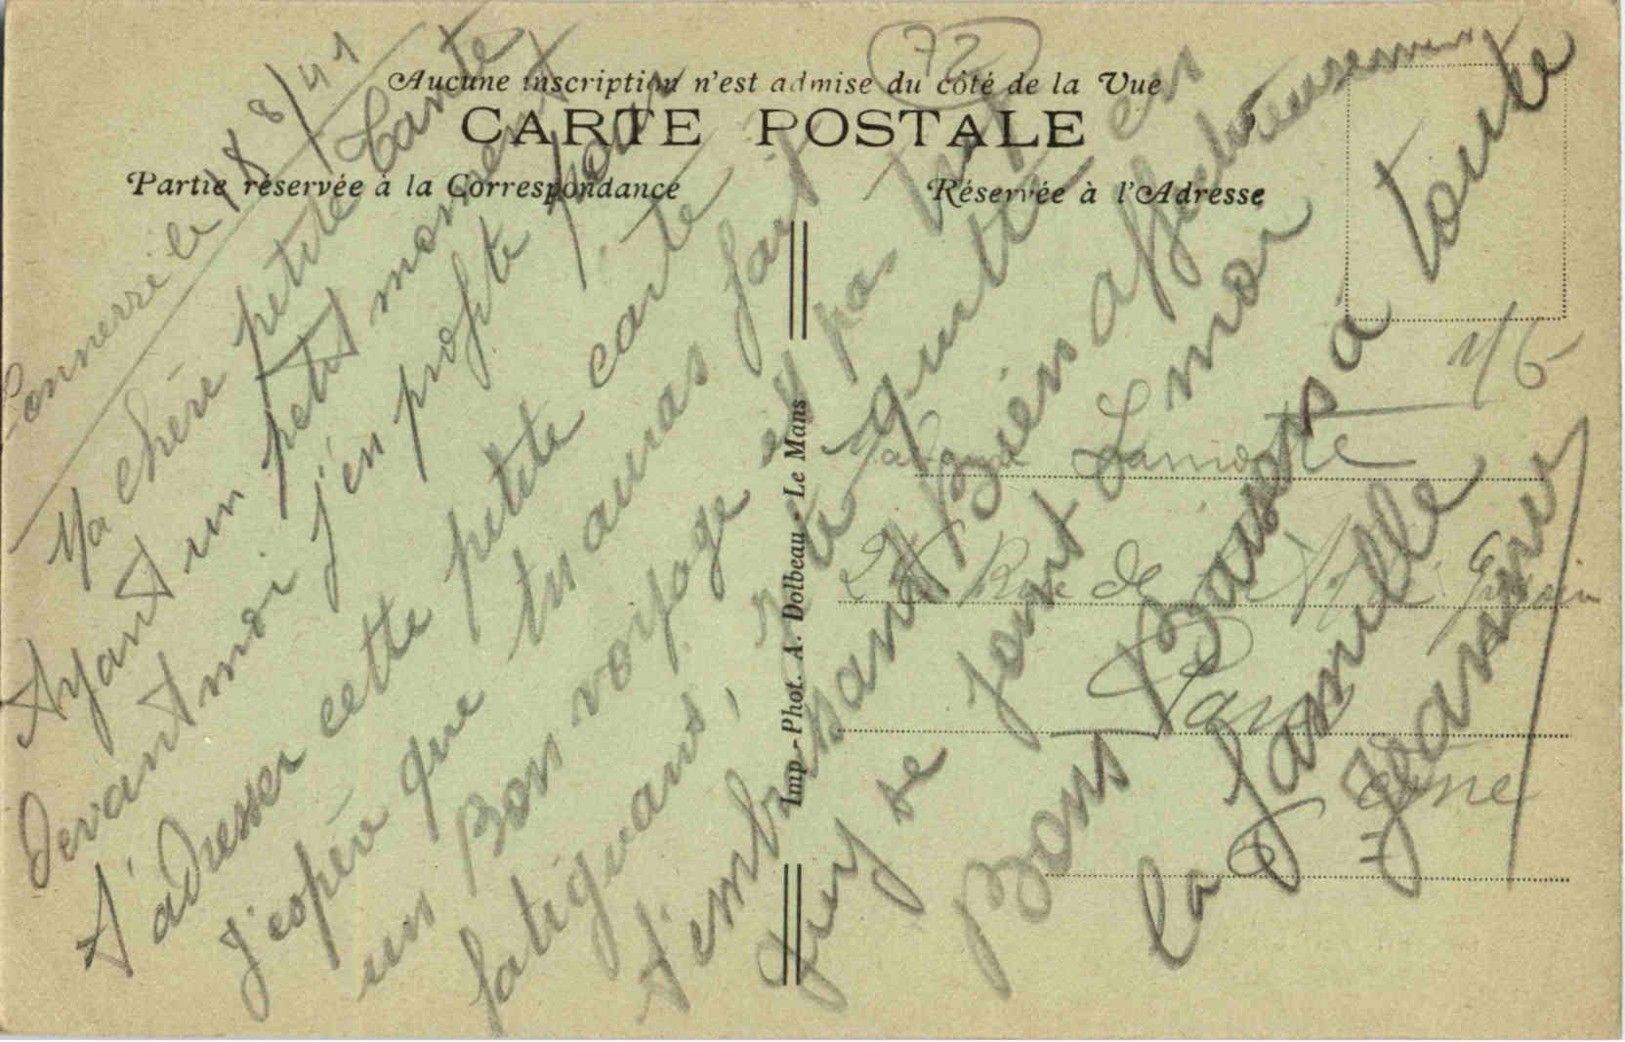 72
Aucune inscription n'est admise du côté de la Vue
CARTE POSTALE
Partie réservée à la Correspondance
Réservée à l'Adresse
Connerré le 18/8/41
Ma chère petite tante
Ayant un petit moment
devant moi j'en profite pour
t'adresser cette petite carte
J'espère que tu auras fait
un Bon voyage et pas trop
fatiguant, je te quitte en
t'embrassant Bien affectueusement
Bons Baisers à toute
la famille
Imp.-Phot. A. Dolbeau - Le Mans
Madame Lamotte
Rue de
Paris